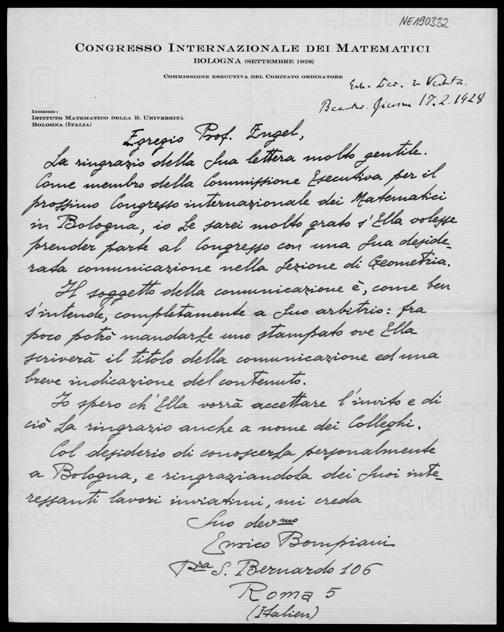 NE190332
CONGRESSO INTERNAZIONALE DEI MATEMATICI
BOLOGNA (SETTEMBRE 1928)
COMMISSIONE ESECUTIVA DEL COMITATO ORDINATORE
17.2.1928
INDIRIZZO:
ISTITUTO MATEMATICO DELLA R. UNIVERSITÀ
BOLOGNA (ITALIA)
Egregio Prof. Engel,
La ringrazio della Sua lettera molto gentile.
Come membro della Commissione Esecutiva per il
prossimo Congresso internazionale dei Matematici
in Bologna, io Le sarei molto grato s'Ella volesse
prender parte al Congresso con una Sua deside-
rata comunicazione nella Sezione di Geometria.
Il soggetto della comunicazione è, come ben
s'intende, completamente a Suo arbitrio: fra
poco potrò mandarLe uno stampato ove Ella
scriverà il titolo della comunicazione ed una
breve indicazione del contenuto.
Io spero ch'Ella vorrà accettare l'invito e di
ciò La ringrazio anche a nome dei Colleghi.
Col desiderio di conoscerLa personalmente
a Bologna, e ringraziandola dei Suoi inte-
ressanti lavori inviatimi, mi creda
Suo devmo
Enrico Bompiani
Pza S. Bernardo 106
Roma 5
(Italien)